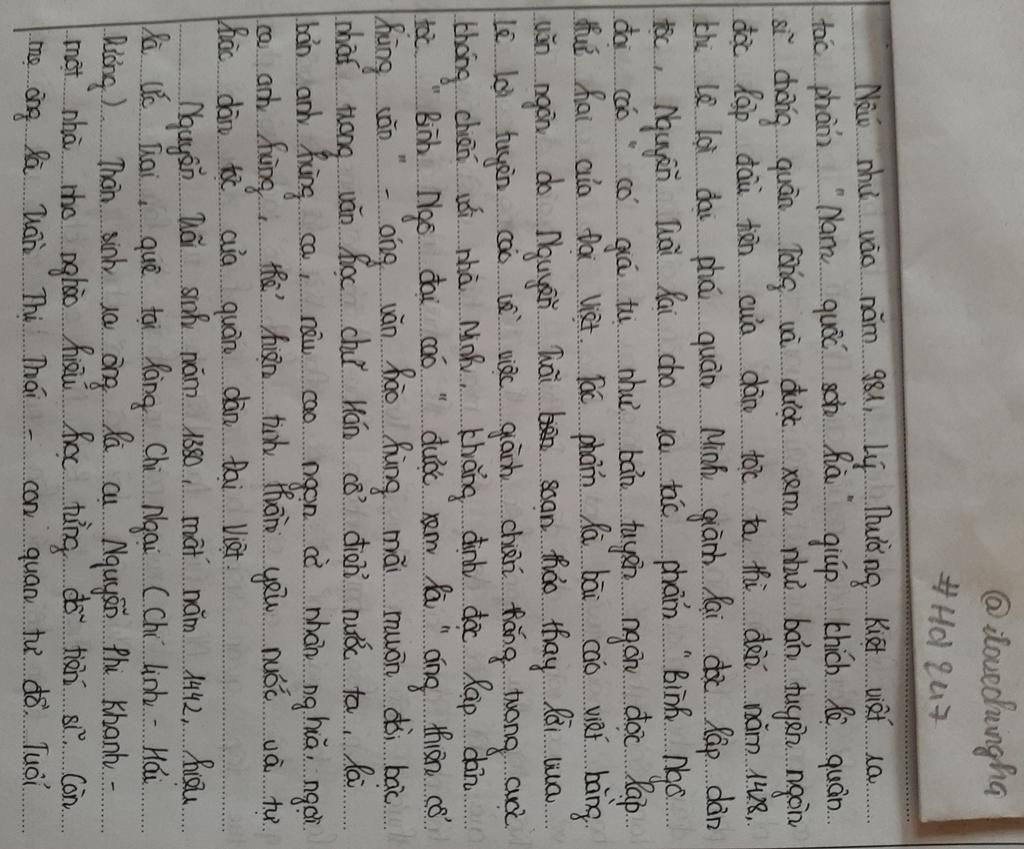 @ilovechungha
#Hoi 247
Nếu như vào năm 981, Lý Thường Kiệt viết ra
tác phẩm "Nam quốc sơn hà" giúp khích lệ quân
sĩ chống quân Tống và được xem như bản tuyên ngôn
độc lập đầu tiên của dân tộc ta thì đến năm 1428,
khi Lê Lợi đại phá quân Minh giành lại độc lập dân
tộc, Nguyễn Trãi lại cho ra tác phẩm "Bình Ngô
đại cáo" có giá trị như bản tuyên ngôn độc lập
thứ hai của Đại Việt. Tác phẩm là bài cáo viết bằng
văn ngôn do Nguyễn Trãi biên soạn thảo thay lời vua
Lê Lợi tuyên cáo về việc giành chiến thắng trong cuộc
kháng chiến với nhà Minh, khẳng định độc lập dân
tộc "Bình Ngô đại cáo" được xem là "áng thiên cổ
hùng văn" - áng văn hào hùng mãi muôn đời bậc
nhất trong văn học chữ Hán cổ điển nước ta, là
bản anh hùng ca, nêu cao ngọn cờ nhân nghĩa, ngợi
ca anh hùng, thể hiện tinh thần yêu nước và tự
hào dân tộc của quân dân Đại Việt.
Nguyễn Trãi sinh năm 1380, mất năm 1442, hiệu
là Ức Trai, quê tại làng Chi Ngại (Chí Linh - Hải
Dương). Thân sinh ra ông là cụ Nguyễn Phi Khanh -
một nhà nho nghèo hiếu học từng đỗ tiến sĩ. Còn
mẹ ông là Trần Thị Thái - con quan tư đồ. Tuổi